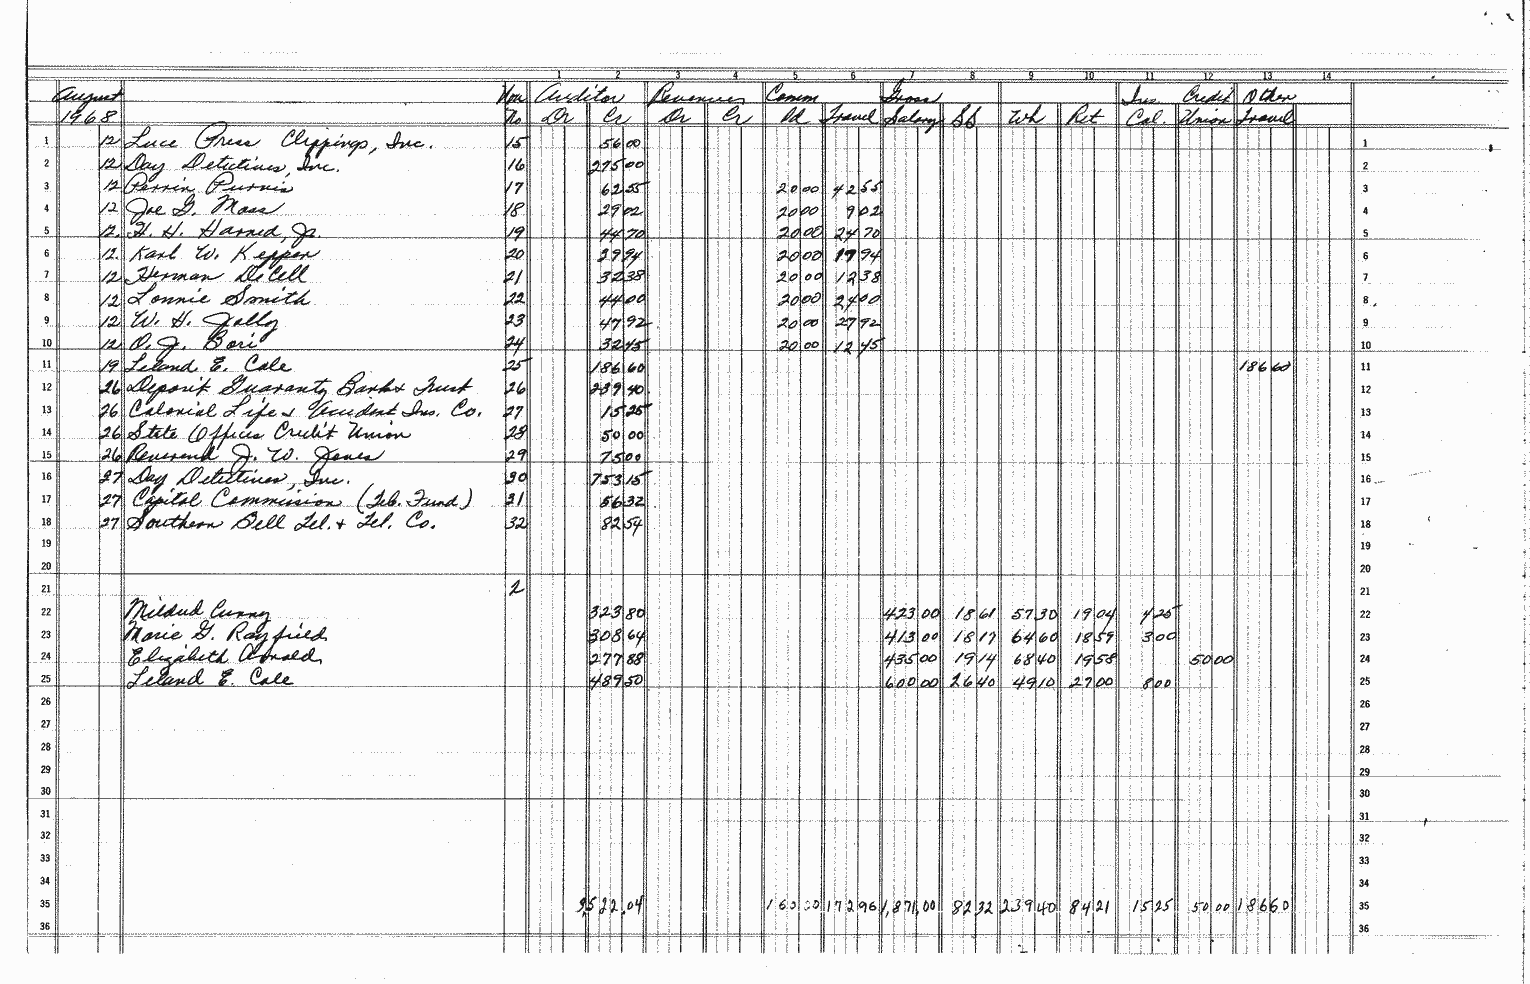 1 2 3 4 5 6 7 8 9 10 11 12 13 14
August Vou Auditor Revenues Comm Gross Ins. Credit Other
1968 No Dr Cr Dr Cr Pd Travel Salary SS Wh Ret Cal. Union Travel
1 12 Luce Press Clippings, Inc. 15 56 00 1
2 12 Day Detectives, Inc. 16 275 00 2
3 12 Perrin Purvis 17 62 55 20 00 42 55 3
4 12 Joe G. Moss 18 29 02 20 00 9 02 4
5 12 H. H. Harned, Jr. 19 44 70 20 00 24 70 5
6 12 Karl W. Kepper 20 39 94 20 00 19 94 6
7 12 Herman DeCell 21 32 38 20 00 12 38 7
8 12 Lonnie Smith 22 44 00 20 00 24 00 8
9 12 W. H. Jolly 23 47 92 20 00 27 92 9
10 12 O. J. Bori 24 32 45 20 00 12 45 10
11 19 Leland E. Cole 25 186 60 186 60 11
12 26 Deposit Guaranty Bank & Trust 26 239 40 12
13 26 Colonial Life & Accident Ins. Co. 27 15 25 13
14 26 State Offices Credit Union 28 50 00 14
15 26 Reverend J. W. Jones 29 75 00 15
16 27 Day Detectives, Inc. 30 753 15 16
17 27 Capitol Commission (Teb. Fund) 31 56 32 17
18 27 Southern Bell Tel. & Tel. Co. 32 82 54 18
19 19
20 20
21 2 21
22 Mildred Curry 323 80 423 00 18 61 57 30 19 04 4 25 22
23 Marie G. Rayfield 308 64 413 00 18 17 64 60 18 59 3 00 23
24 Elizabeth Arnold 277 88 435 00 19 14 68 40 19 58 50 00 24
25 Leland E. Cole 489 50 600 00 26 40 49 10 27 00 8 00 25
26 26
27 27
28 28
29 29
30 30
31 31
32 32
33 33
34 34
35 3,522.04 160 00 172 96 1,871.00 82 32 239 40 84 21 15 25 50 00 186 60 35
36 36